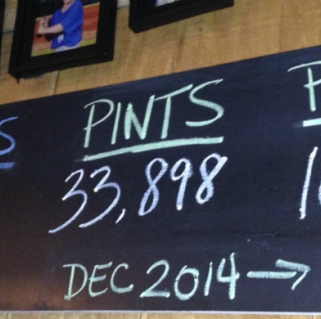 PINTS
33,898
DEC 2014 →